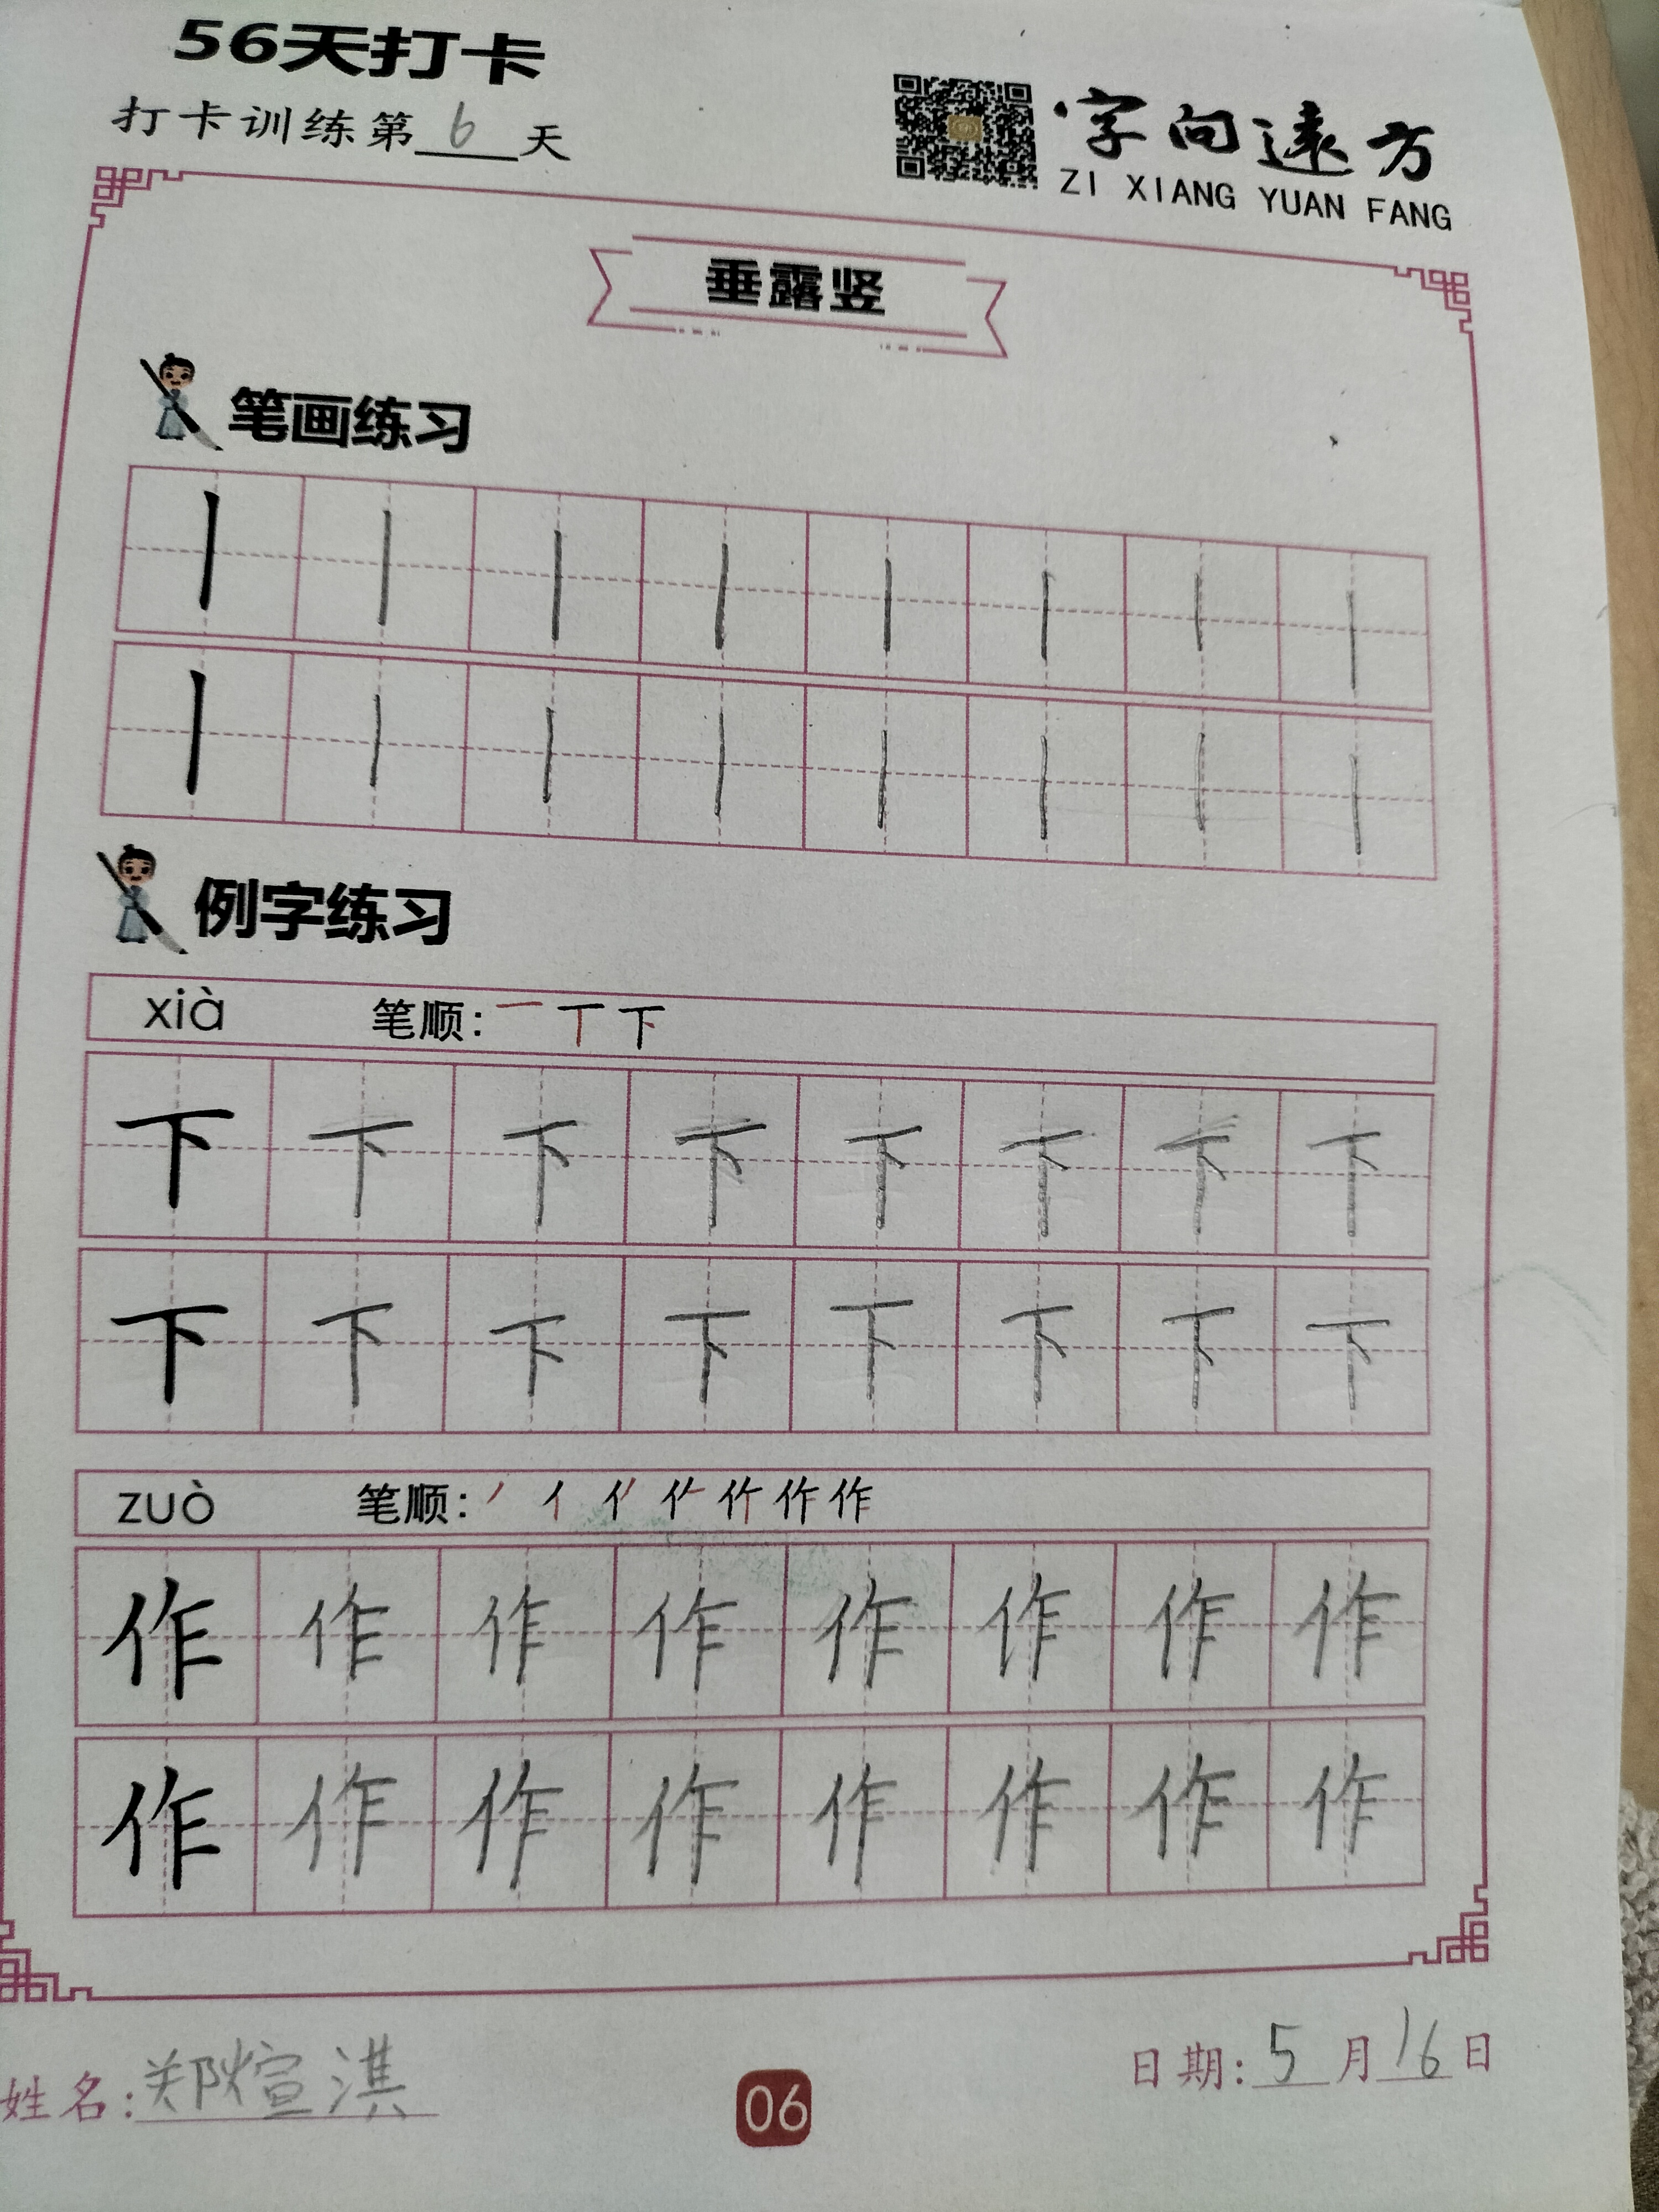 56天打卡
打卡训练第6天
字向远方
ZI XIANG YUAN FANG
垂露竖
笔画练习
例字练习
xià 笔顺: 一 丅 下
下 下 下 下 下 下 下 下
下 下 下 下 下 下 下 下
zuò 笔顺: 作
作 作 作 作 作 作 作 作
作 作 作 作 作 作 作 作
姓名:郑煊淇
06
日期:5月16日